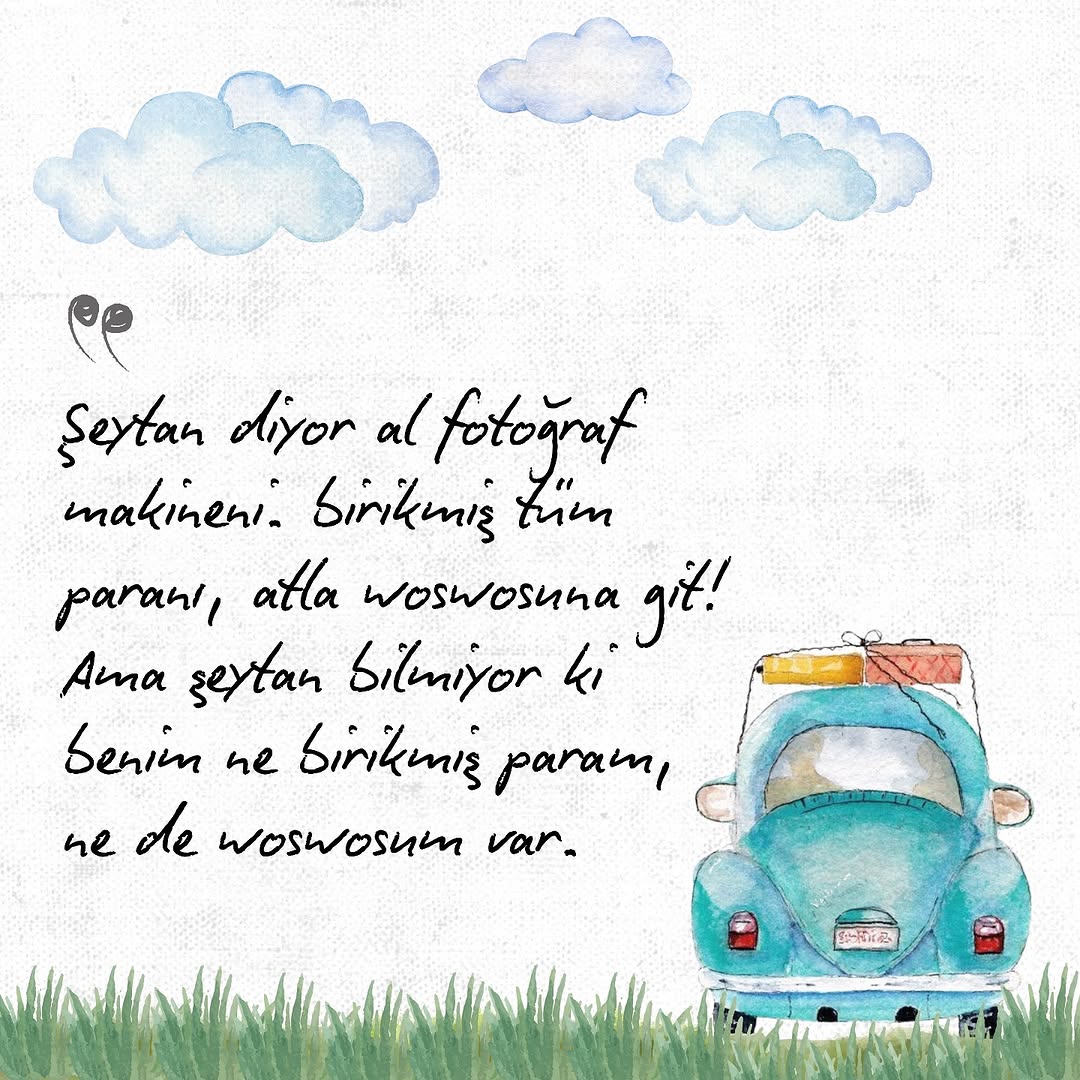 Şeytan diyor al fotoğraf
makineni. birikmiş tüm
paranı, atla woswosuna git!
Ama şeytan bilmiyor ki
benim ne birikmiş param,
ne de woswosum var.